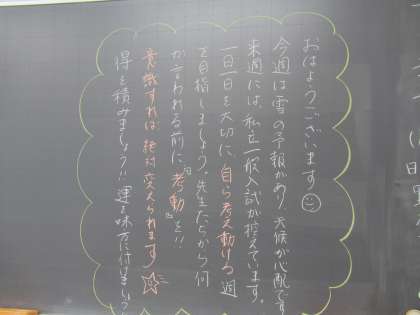 おはようございます
今週は雪の予報があり、天候が心配です
来週には、私立一般入試が控えています。
一日一日を大切に、自ら考え動ける週
を目指しましょう。先生たちから何
か言われる前に、"考動"を!!
意識すれば絶対変えられます
得を積みましょう!! 運を味方に付けましょう
日